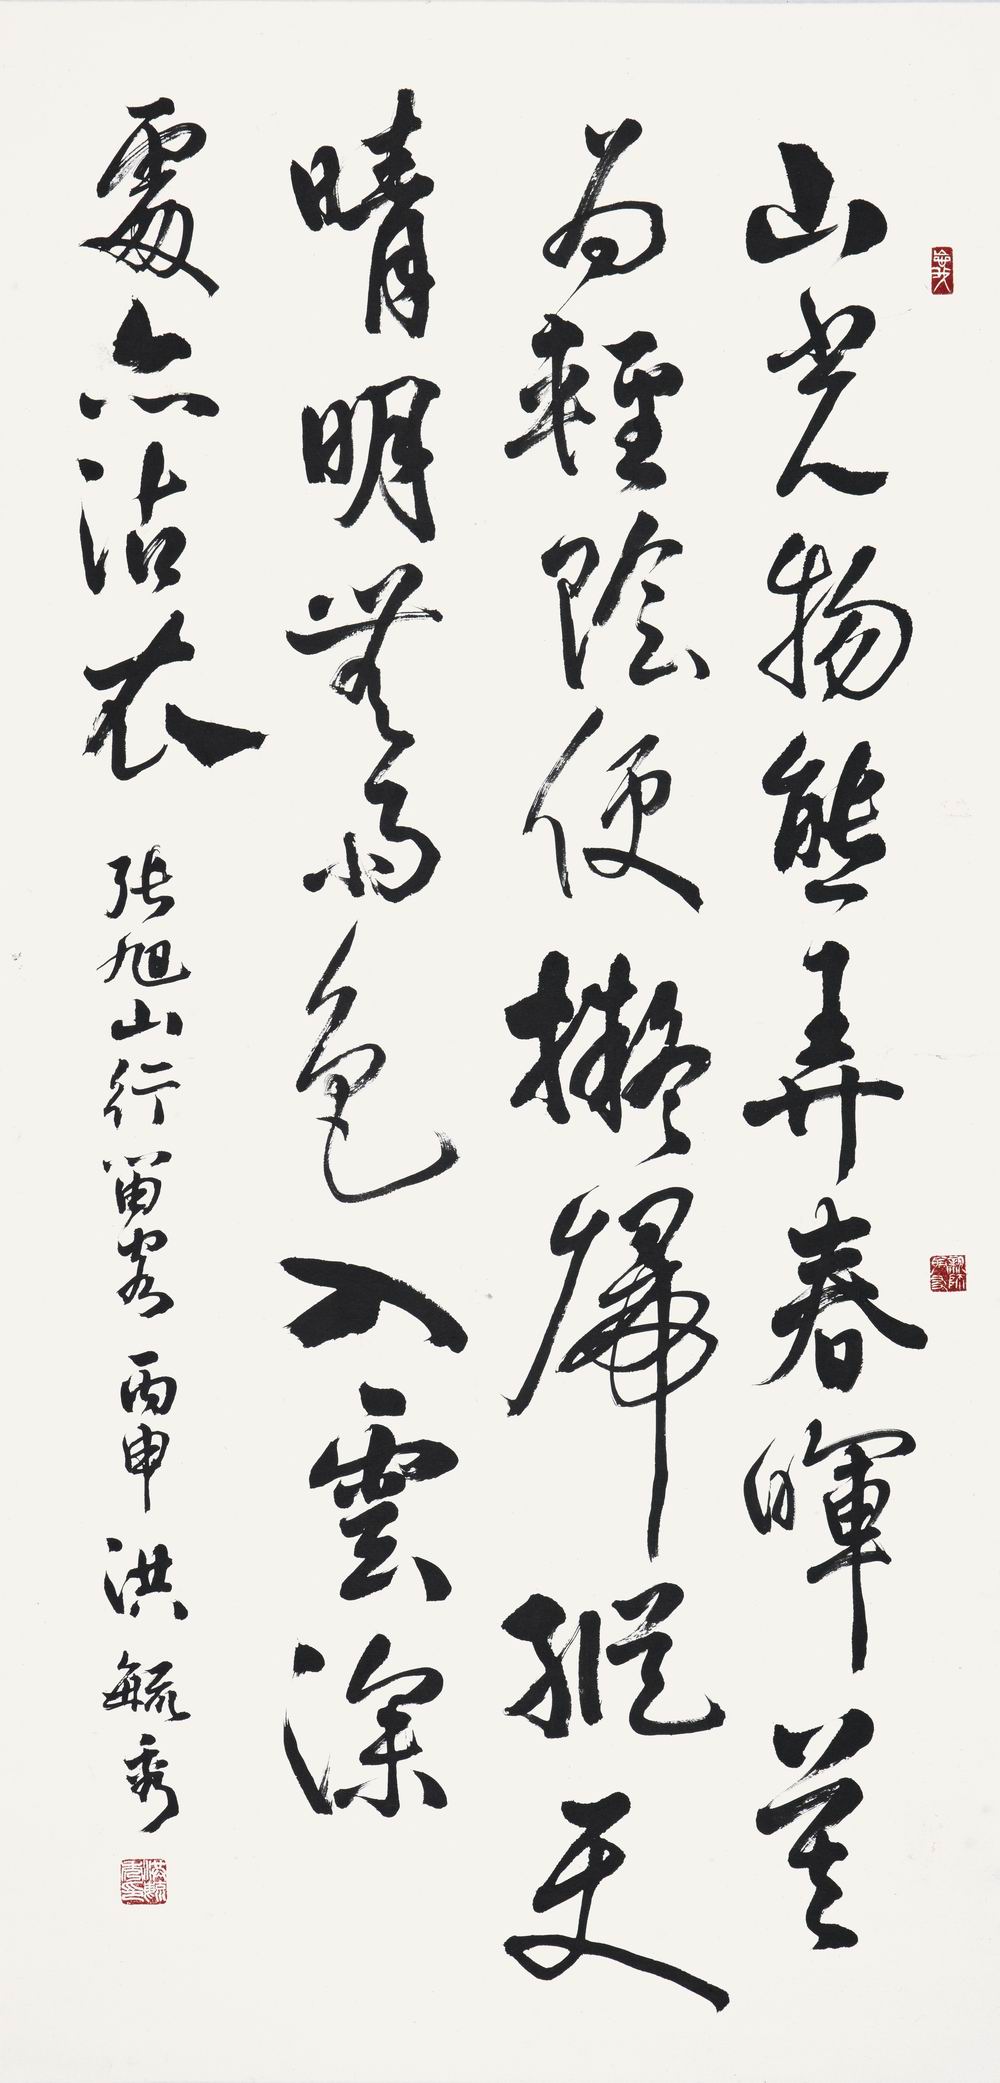 山光物態弄春暉莫
為輕陰便擬歸縱更
晴明無雨色入雲深
處亦沾衣 張旭山行留客 丙申 洪毓秀